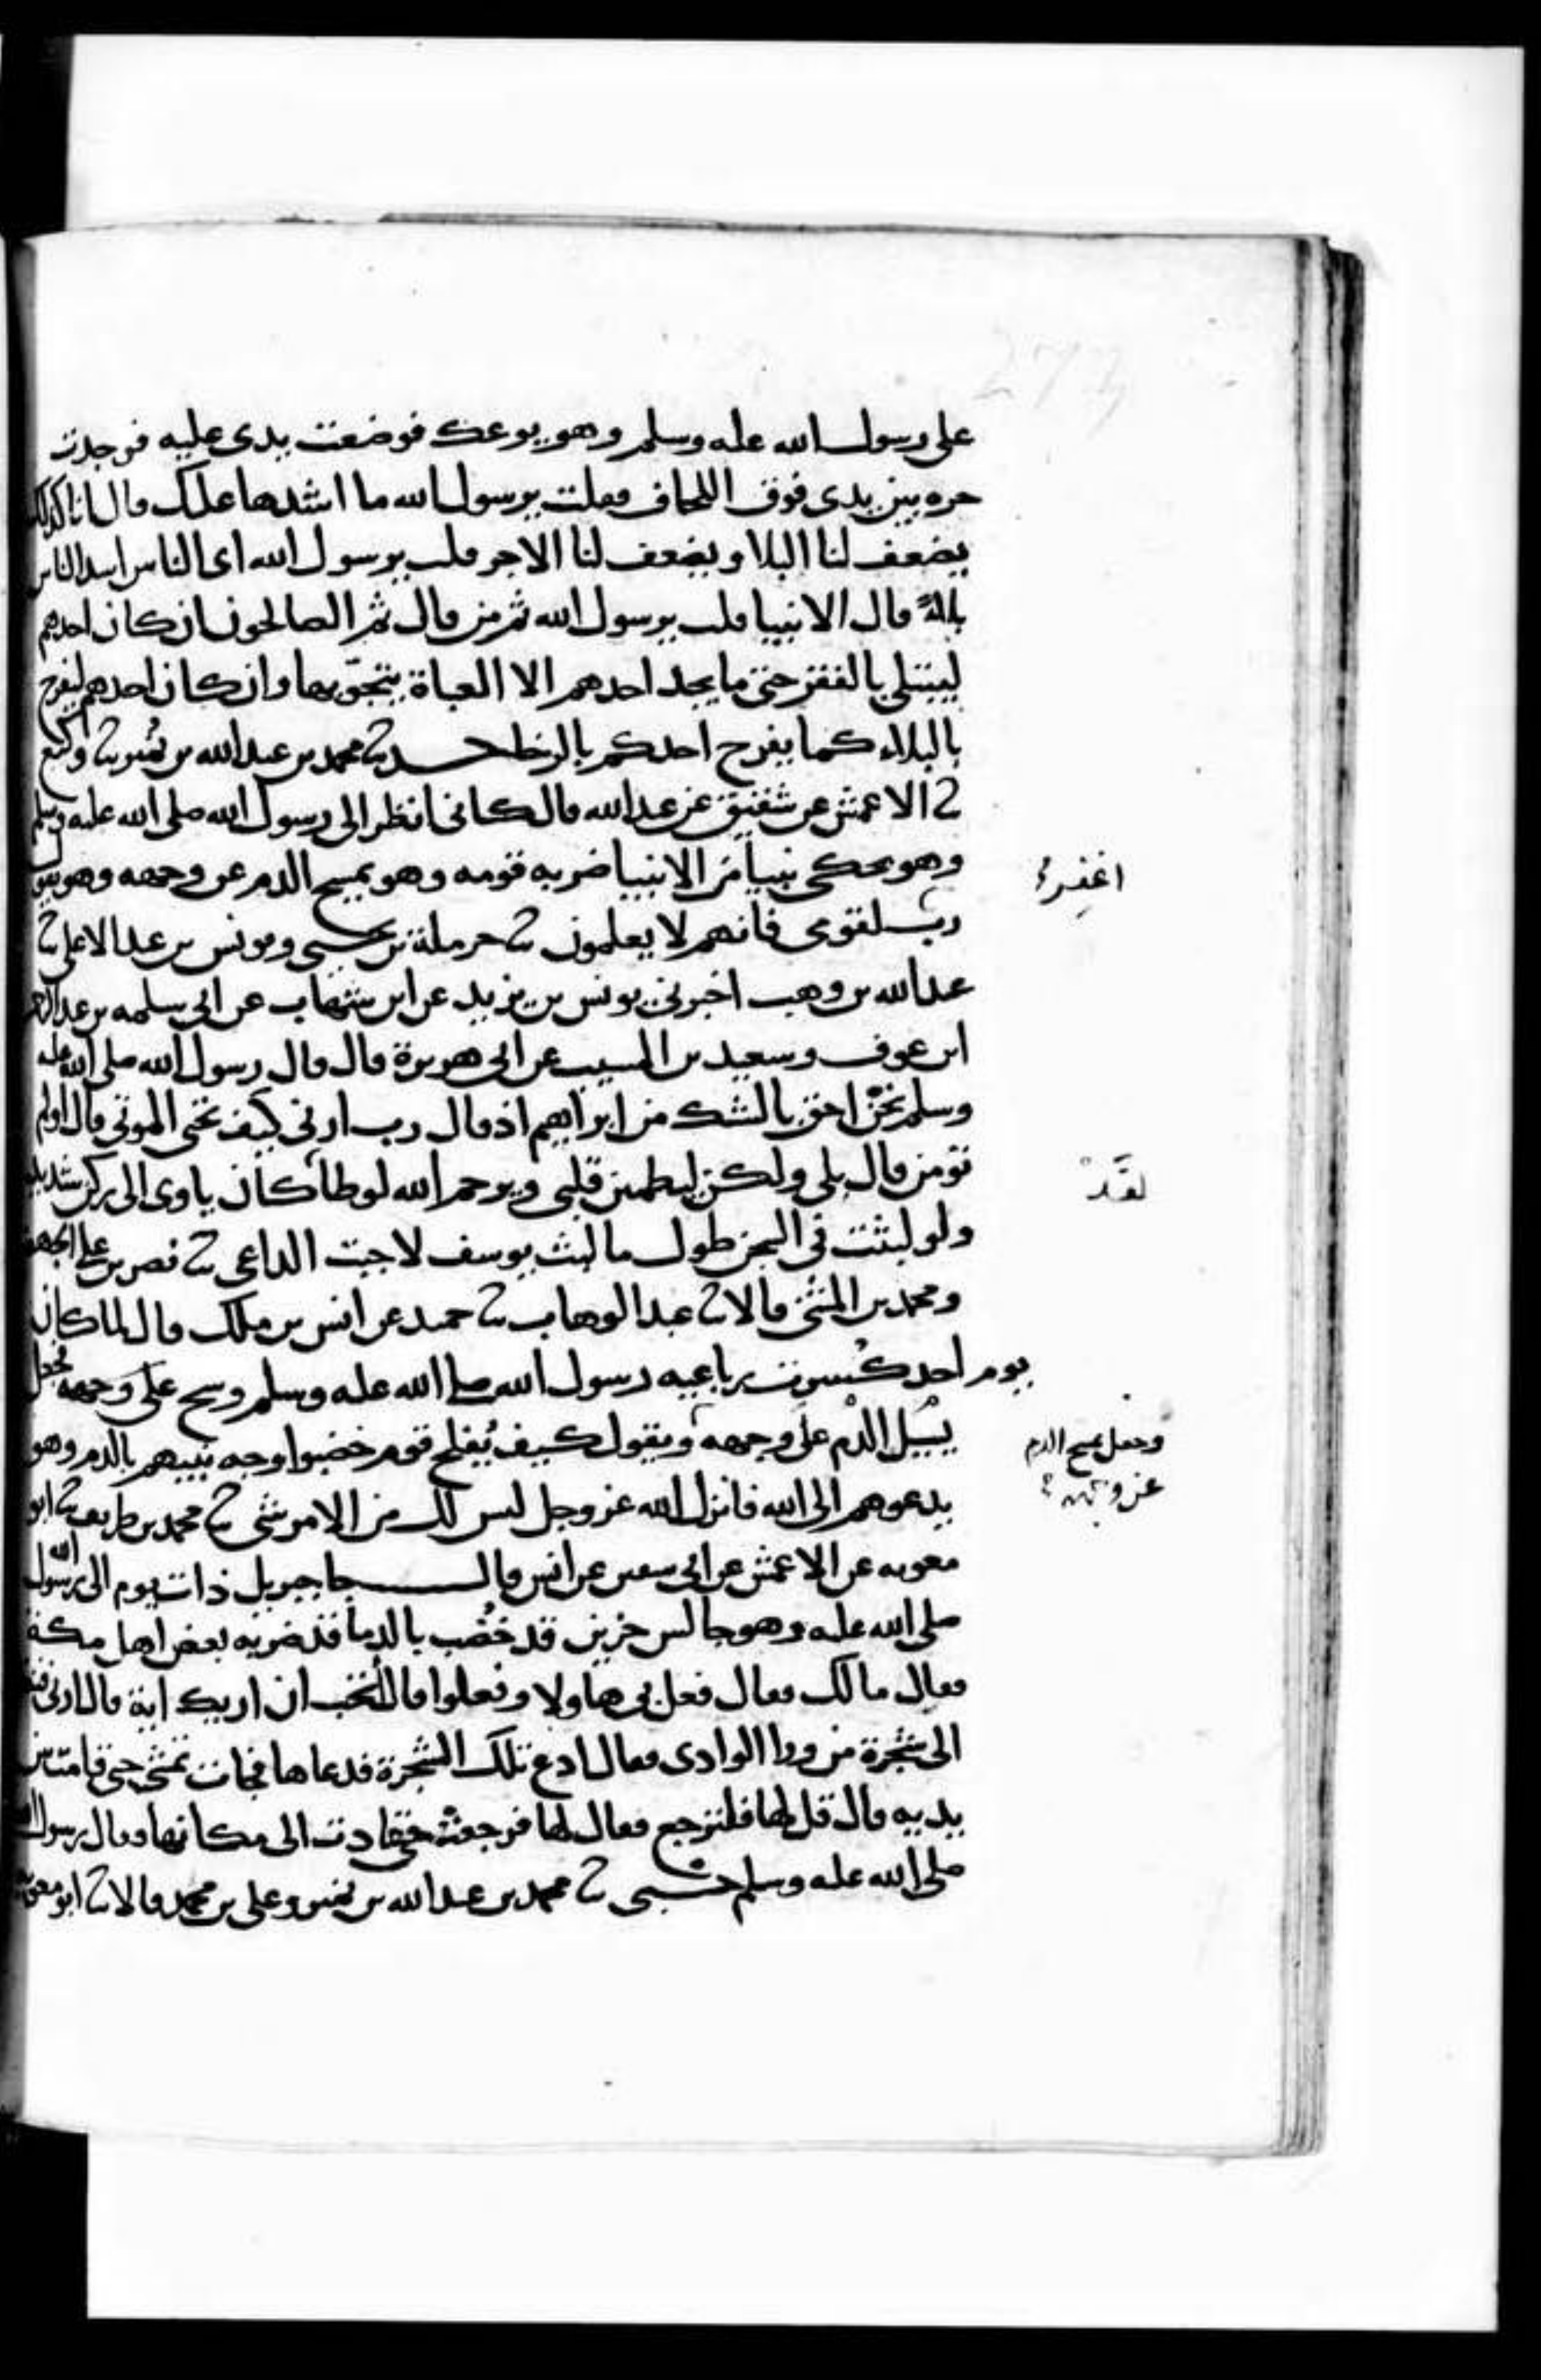 على رسول الله عليه وسلم وهو يوعك فوضعت يدى عليه فوجدت
حره بين يدى فوق اللحاف فقلت يرسول الله ما اشدها عليك قال انا كذلك
يضعف لنا البلا ويضعف لنا الاجر قلت يرسول الله اى الناس اشد الناس
بلاء قال الانبيا قلت يرسول الله ثم من قال ثم الصالحون ان كان احدهم
ليبتلى بالفقر حتى ما يجد احدهم الا العباة يتجوّبها وان كان احدهم ليفرح
بالبلاء كما يفرح احدكم بالرخا حدثنا محمد بن عبد الله بن نُمير ثنا وكيع
ثنا الاعمش عن شقيق عن عبد الله قال كانى انظر الى رسول الله صلى الله عليه وسلم
وهو يحكى نبياً من الانبيا ضربه قومه وهو يمسح الدم عن وجهه وهو يقول
اغفر
رب لقومى فانهم لا يعلمون ثنا حرملة بن يحيى ويونس بن عبد الاعلى ثنا
عبد الله بن وهب اخبرنى يونس بن يزيد عن ابن شهاب عن ابى سلمه بن عبد الرحمن
ابن عوف وسعيد بن المسيب عن ابى هريرة قال قال رسول الله صلى الله عليه
وسلم نحن احق بالشك من ابراهيم اذ قال رب ارنى كيف تحى الموتى قال اولم
تومن قال بلى ولكن ليطمين قلبى ويرحم الله لوطا كان ياوى الى ركن شديد
لقد
ولو لبثت فى السجن طول ما لبث يوسف لاجبت الداعى ثنا نصر بن على الجهضمى
ومحمد بن المثنى قالا ثنا عبد الوهاب ثنا حميد عن انس بن ملك قال لما كان
يوم احد كُسرت رباعيه رسول الله صلى الله عليه وسلم وشج على وجهه فجعل
يسيل الدم على وجهه ويقول كيف يُفلح قوم خضبوا وجه نبيهم بالدم وهو
وجعل يمسح الدم
عن وجهه
يدعوهم الى الله فانزل الله عز وجل ليس لك من الامر شى ثنا محمد بن طريف ثنا ابو
معويه عن الاعمش عن ابى سفين عن انس قال جا جبريل ذات يوم الى رسول الله
صلى الله عليه وهو جالس حزين قد خُضب بالدما قد ضربه بعض اهل مكة
فقال مالك فقال فعل بى هاولا وفعلوا قال أتحب ان اريك اية قال ارنى فنظر
الى شجرة من ورا الوادى فقال ادع تلك الشجرة فدعاها فجات تمشى حتى قامت بين
يديه قال قل لها فلترجع فقال لها فرجعت حتى عادت الى مكانها فقال رسول الله
صلى الله عليه وسلم حسبى ثنا محمد بن عبد الله بن نمير وعلى بن محمد قالا ثنا ابو معوية